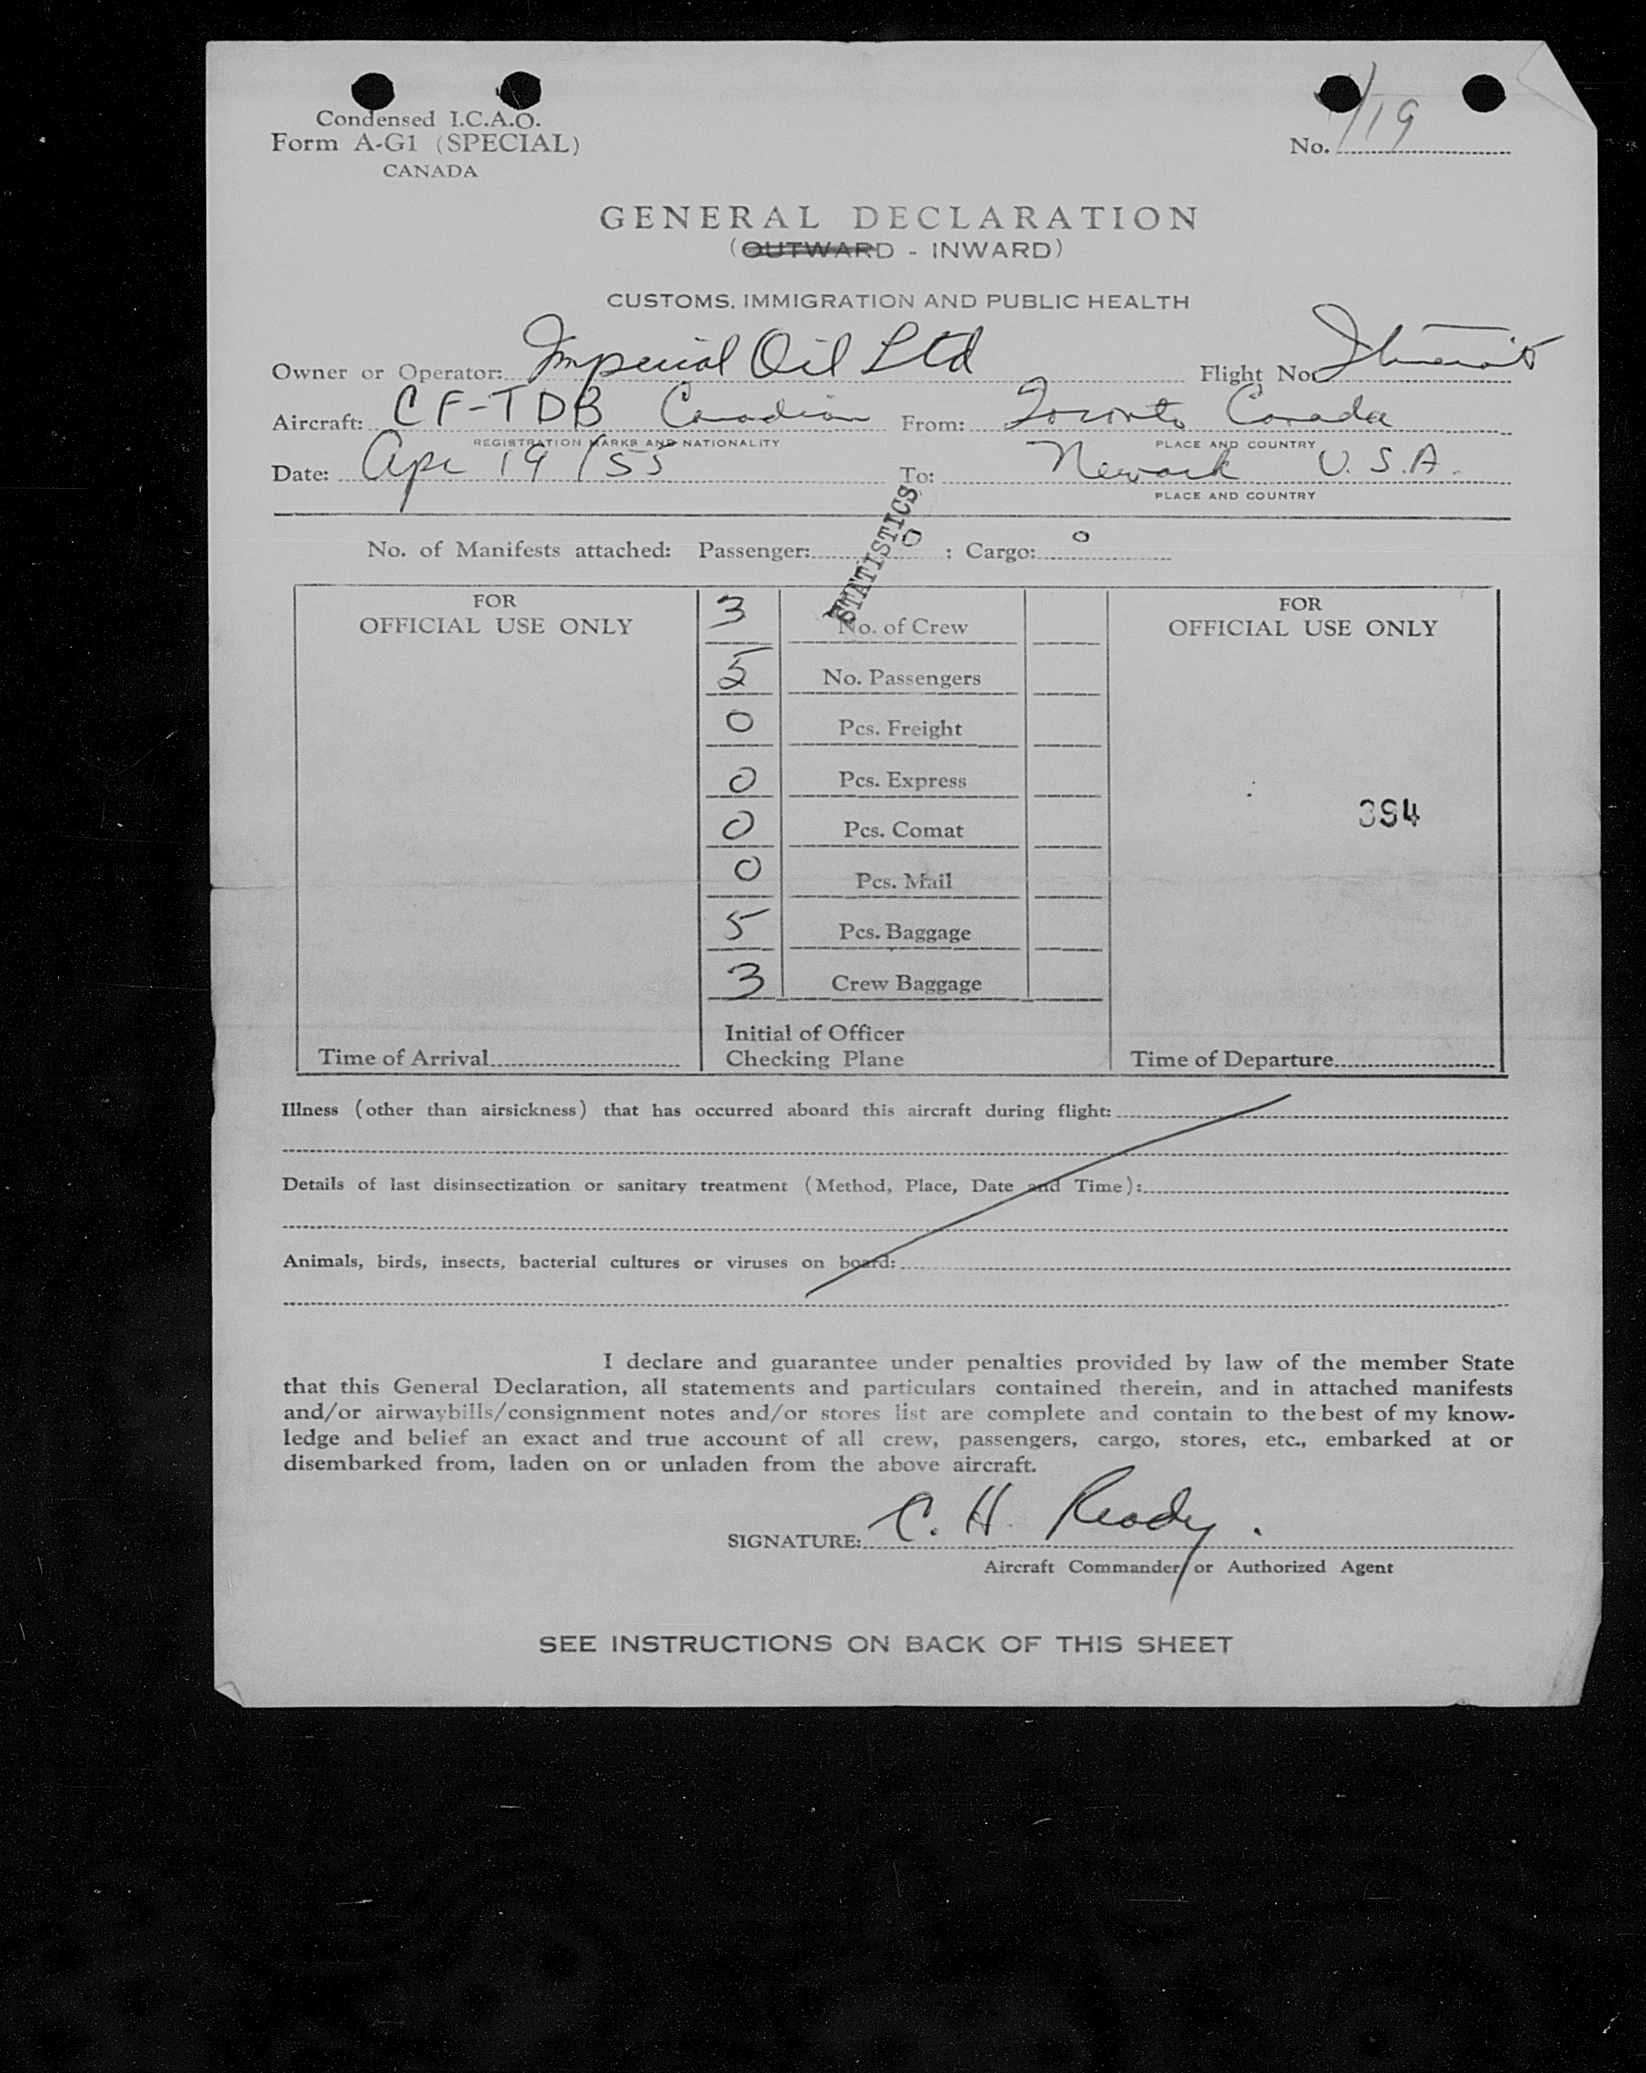 Condensed I.C.A.O.
Form A-G1 (SPECIAL)
CANADA
No. 119
GENERAL DECLARATION
(OUTWARD - INWARD)
CUSTOMS, IMMIGRATION AND PUBLIC HEALTH
Owner or Operator: Imperial Oil Ltd Flight No.
Aircraft: CF-TDB Canadian From: Toronto Canada
REGISTRATION MARKS AND NATIONALITY PLACE AND COUNTRY
Date: Apr 19/55 To: Newark U.S.A.
PLACE AND COUNTRY
STATISTICS
No. of Manifests attached: Passenger: 0 ; Cargo: 0
FOR
OFFICIAL USE ONLY
3 No. of Crew
5 No. Passengers
0 Pcs. Freight
0 Pcs. Express
0 Pcs. Comat
0 Pcs. Mail
5 Pcs. Baggage
3 Crew Baggage
Initial of Officer
Checking Plane
FOR
OFFICIAL USE ONLY
394
Time of Arrival
Time of Departure
Illness (other than airsickness) that has occurred aboard this aircraft during flight:
Details of last disinsectization or sanitary treatment (Method, Place, Date and Time):
Animals, birds, insects, bacterial cultures or viruses on board:
I declare and guarantee under penalties provided by law of the member State
that this General Declaration, all statements and particulars contained therein, and in attached manifests
and/or airwaybills/consignment notes and/or stores list are complete and contain to the best of my know-
ledge and belief an exact and true account of all crew, passengers, cargo, stores, etc., embarked at or
disembarked from, laden on or unladen from the above aircraft.
SIGNATURE: C. H. Ready.
Aircraft Commander or Authorized Agent
SEE INSTRUCTIONS ON BACK OF THIS SHEET